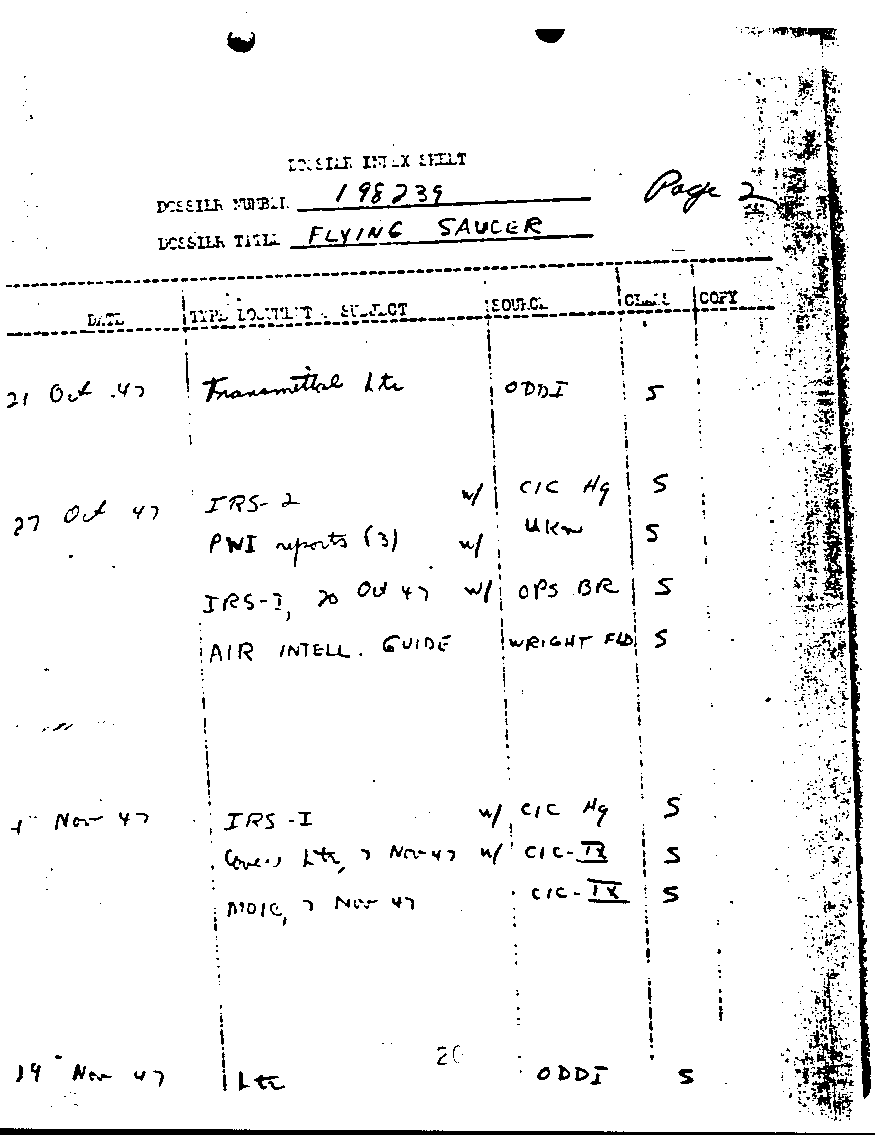 DOSSIER INDEX SHEET
DOSSIER NUMBER 198239
Page 2
DOSSIER TITLE FLYING SAUCER
DATE TYPE DOCUMENT & SUBJECT SOURCE CLASS COPY
21 Oct 47 Transmittal Ltr ODDI S
27 Oct 47 IRS-2 w/ CIC Hq S
PWI reports (3) w/ UKn S
IRS-I, 20 Oct 47 w/ OPS BR S
AIR INTELL. GUIDE WRIGHT FLD S
Nov 47 IRS-I w/ CIC Hq S
Cover Ltr, 7 Nov 47 w/ CIC-IX S
MOIC, 7 Nov 47 CIC-IX S
20
19 Nov 47 Ltr ODDI S